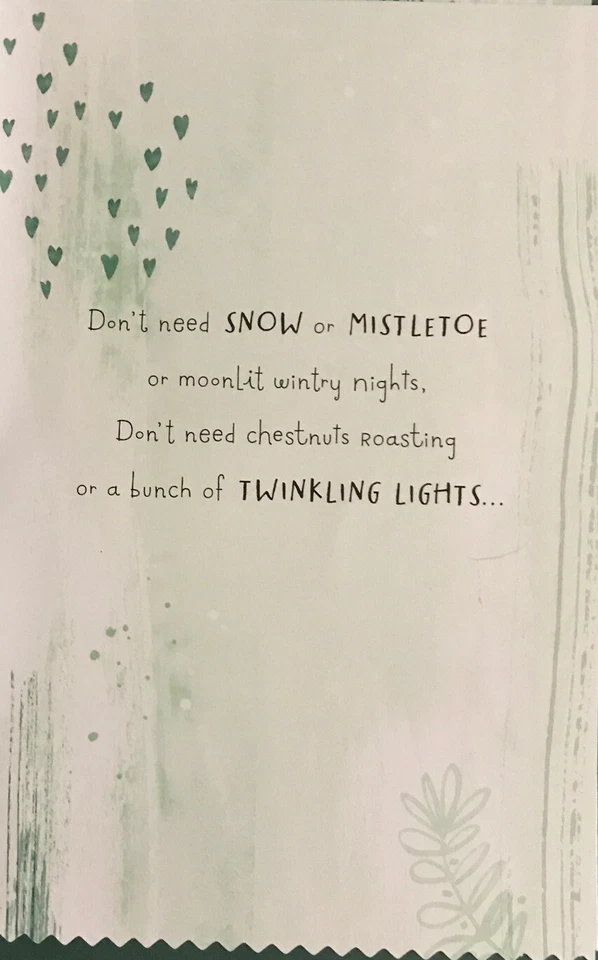 Don't need SNOW or MISTLETOE
or moonlit wintry nights,
Don't need chestnuts Roasting
or a bunch of TWINKLING LIGHTS...